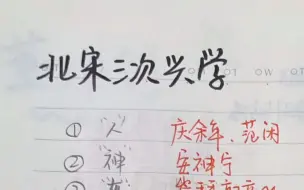 北宋三次兴学
① "人" 庆余年、范闲
② "神" 安神宁
③